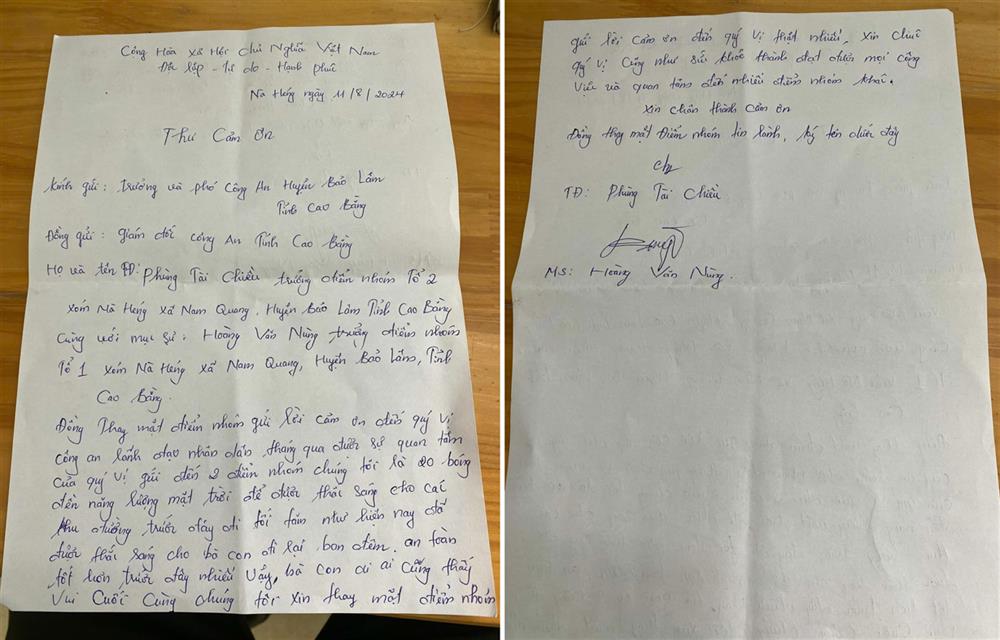 Cộng Hòa xã Hội chủ Nghĩa Việt Nam
Độc lập - tự do - Hạnh phúc
Nà Héng ngày 11/8/2024
Thư Cảm ơn
kính gửi: trưởng và phó Công An Huyện Bảo Lâm
Tỉnh Cao Bằng
Đồng gửi: giám đốc công An Tỉnh Cao Bằng
Họ và tên TĐ: Phùng Tài Chiều trưởng điểm nhóm Tổ 2
xóm Nà Héng xã Nam Quang, Huyện Bảo Lâm Tỉnh Cao Bằng
Cùng với mục sư: Hoàng Văn Nùng trưởng điểm nhóm
Tổ 1 xóm Nà Héng xã Nam Quang, Huyện Bảo Lâm, Tỉnh
Cao Bằng.
Đồng Thay mặt điểm nhóm gửi lời cảm ơn đến quý vị
công an lãnh đạo nhân dân tháng qua được sự quan tâm
của quý vị gửi đến 2 điểm nhóm chúng tôi là 20 bóng
đèn năng lượng mặt trời để được thắp sáng cho các
khu đường trước đây đi tối tăm như hiện nay đã
được thắp sáng cho bà con đi lại ban đêm. an toàn
tốt hơn trước đây nhiều vậy, bà con ai ai cũng thấy
Vui Cuối Cùng chúng tôi xin thay mặt điểm nhóm
gửi lời Cảm ơn đến quý vị thật nhiều, xin chúc
quý vị Cũng như sức khỏe thành đạt được mọi công
việc và quan tâm đến nhiều điểm nhóm khác.
xin chân thành cảm ơn
Đồng thay mặt Điểm nhóm tin lành, ký tên dưới đây
TĐ: Phùng Tài Chiều
MS: Hoàng Văn Nùng.